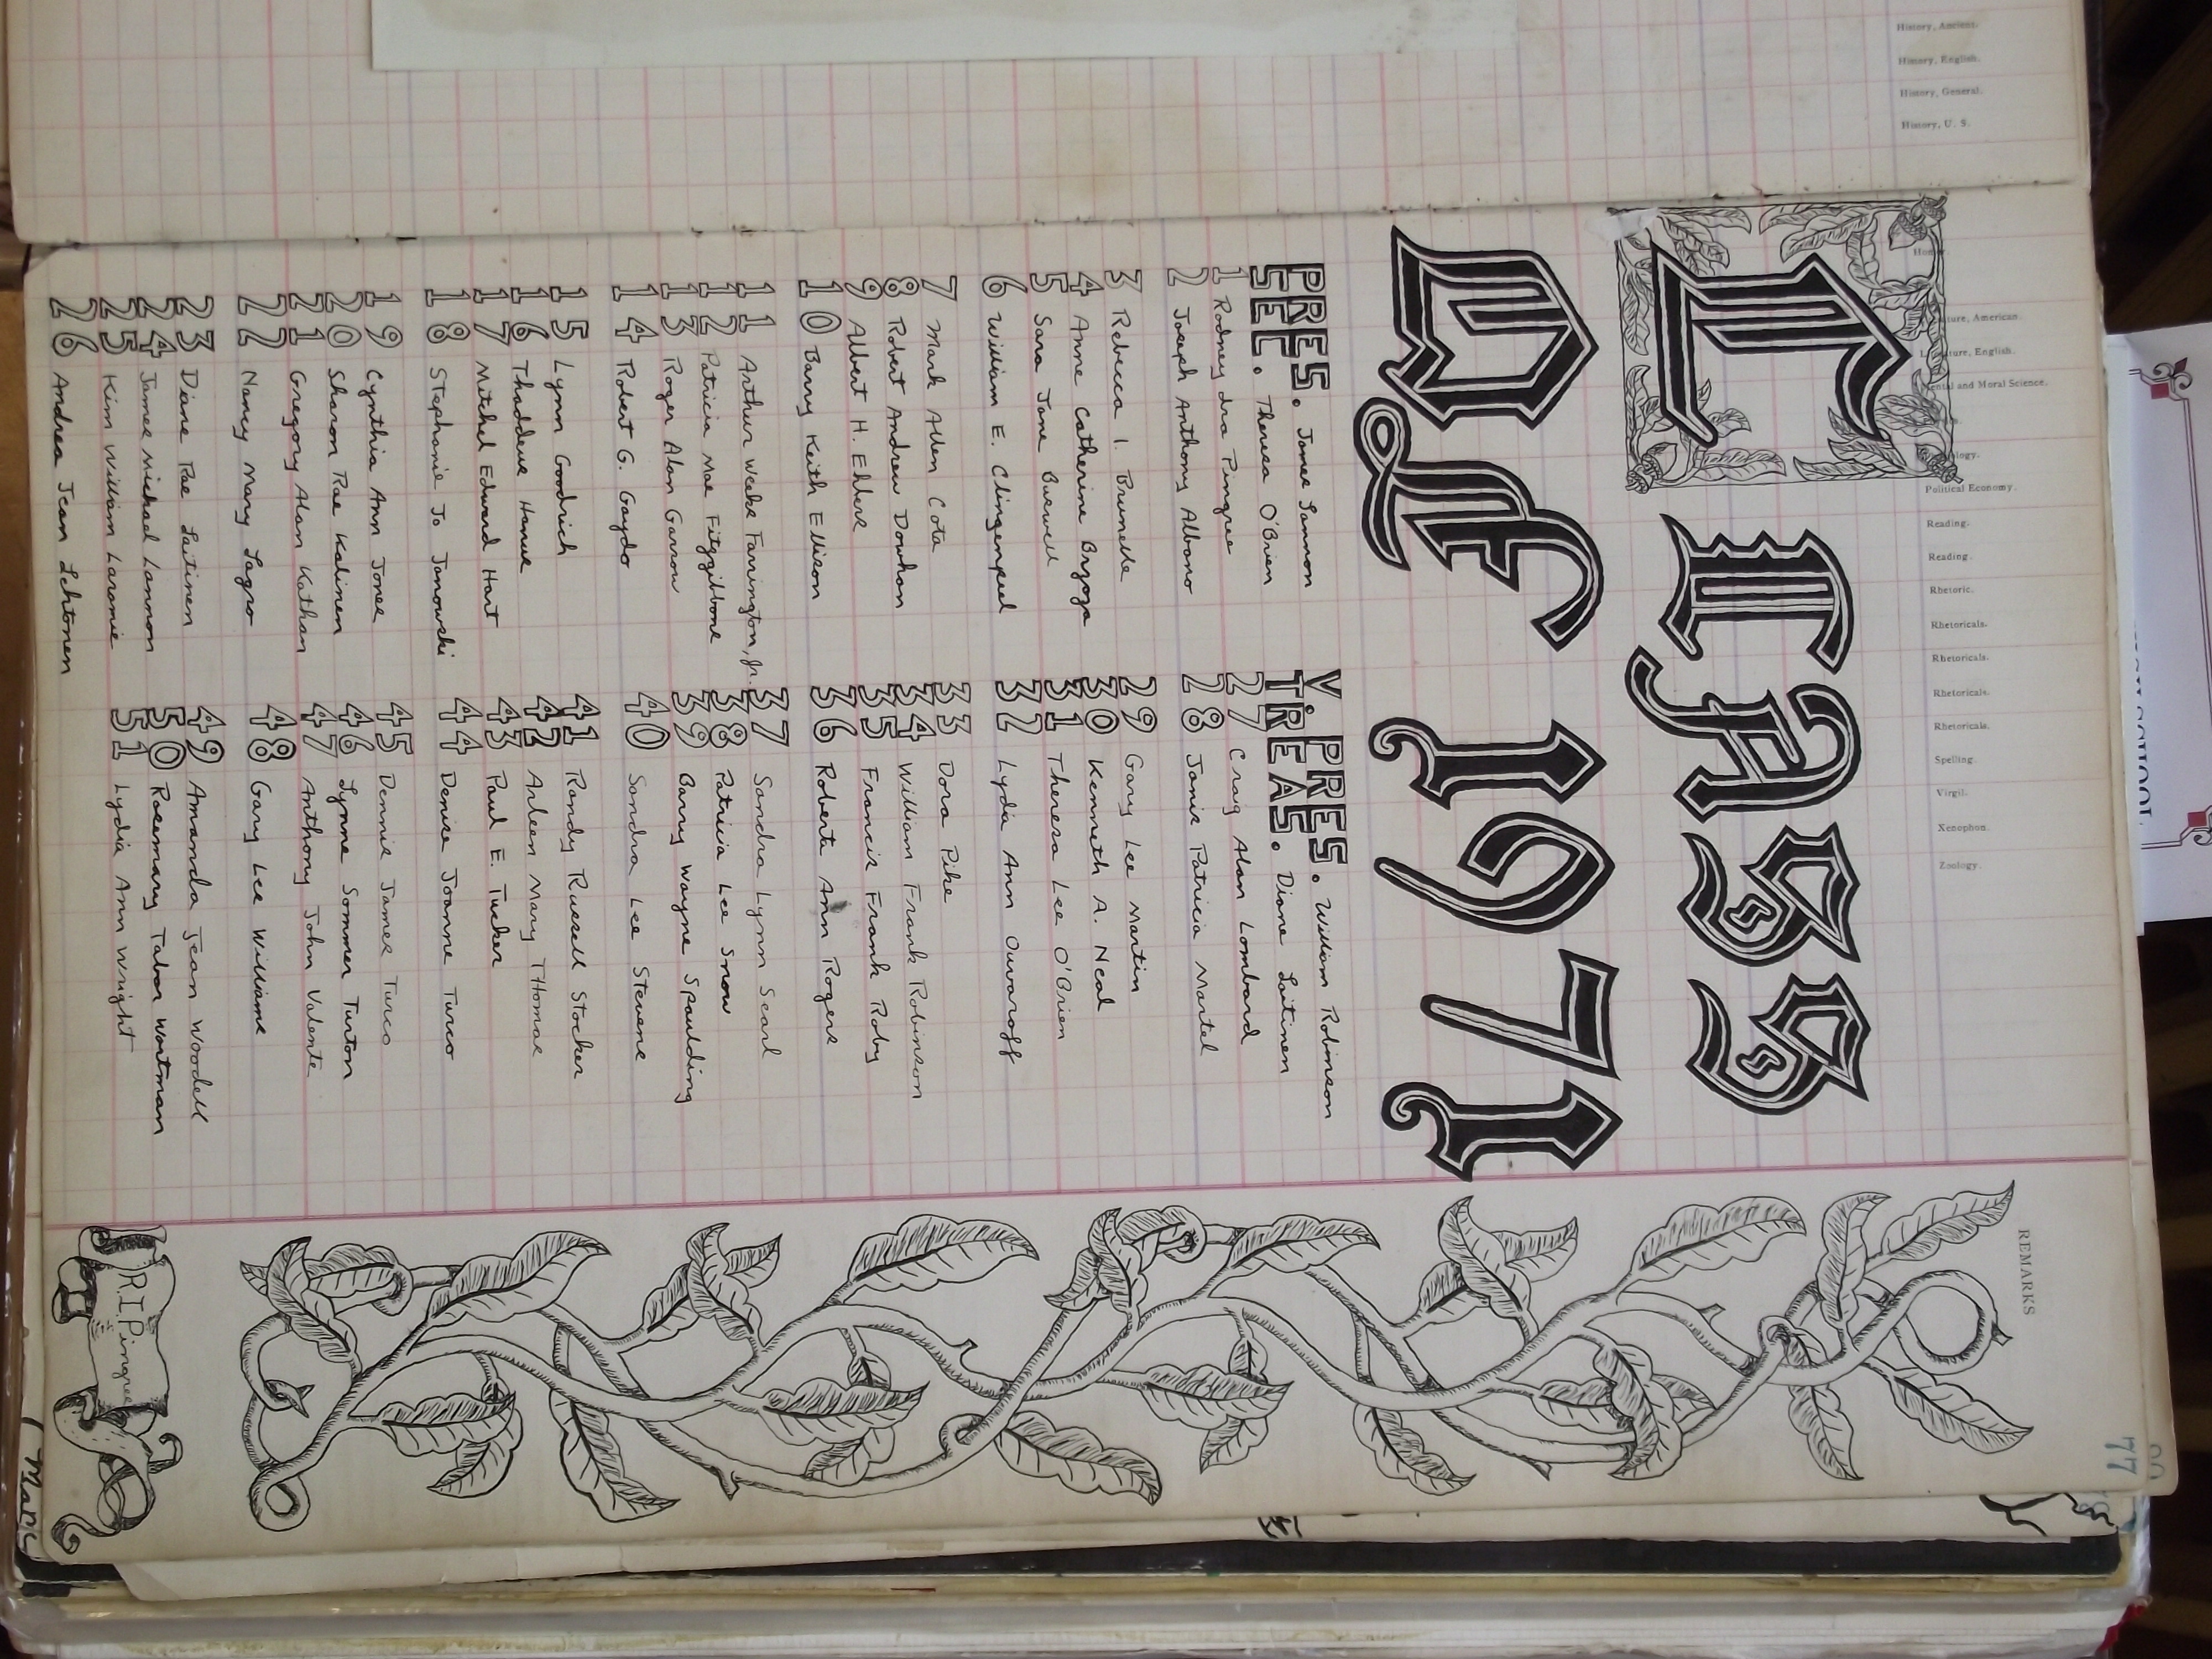 THE CLASS
OF 1971
PRES. James Lannon
SEC. Theresa O'Brien
1 Rodney Ira Pingree
2 Joseph Anthony Albano
3 Rebecca I. Brunelle
4 Anne Catherine Bzyoza
5 Sara Jane Burwell
6 William E. Clingenpeel
7 Mark Allen Cota
8 Robert Andrew Dowhan
9 Albert H. Ehlers
10 Barry Keith Ellison
11 Arthur Weeks Farington, Jr.
12 Patricia Mae Fitzgibbons
13 Roger Alan Garrow
14 Robert G. Gaydo
15 Lynn Goodrich
16 Thaddeus Hanus
17 Mitchel Edward Hart
18 Stephanie Jo Janowski
19 Cynthia Ann Jones
20 Sharon Rae Kalinen
21 Gregory Alan Kathan
22 Nancy Mary Lagro
23 Diane Rae Laitinen
24 James Michael Lannon
25 Kim William Laramie
26 Andrea Jean Lehtonen
V. PRES. William Robinson
TREAS. Diane Laitinen
27 Craig Alan Lombard
28 Janis Patricia Martel
29 Gary Lee Martin
30 Kenneth A. Neal
31 Theresa Lee O'Brien
32 Lydia Ann Ouvaroff
33 Dora Pike
34 William Frank Robinson
35 Francis Frank Roby
36 Roberta Ann Rogers
37 Sandra Lynn Searl
38 Patricia Lee Snow
39 Barry Wayne Spaulding
40 Sandra Lee Stevens
41 Randy Russell Stocker
42 Arleen Mary Thomas
43 Paul E. Tucker
44 Denise Joanne Turco
45 Dennis James Turco
46 Lynne Sommer Turton
47 Anthony John Valente
48 Gary Lee Williams
49 Amanda Jean Woodell
50 Rosemary Tabor Wortman
51 Lydia Ann Wright
R.I. Pingree
REMARKS
History, Ancient.
History, English.
History, General.
History, U. S.
Literature, American
Literature, English.
Mental and Moral Science.
Political Economy.
Reading.
Reading.
Rhetoric.
Rhetoricals.
Rhetoricals.
Rhetoricals.
Rhetoricals.
Spelling.
Virgil.
Xenophon.
Zoology.
77